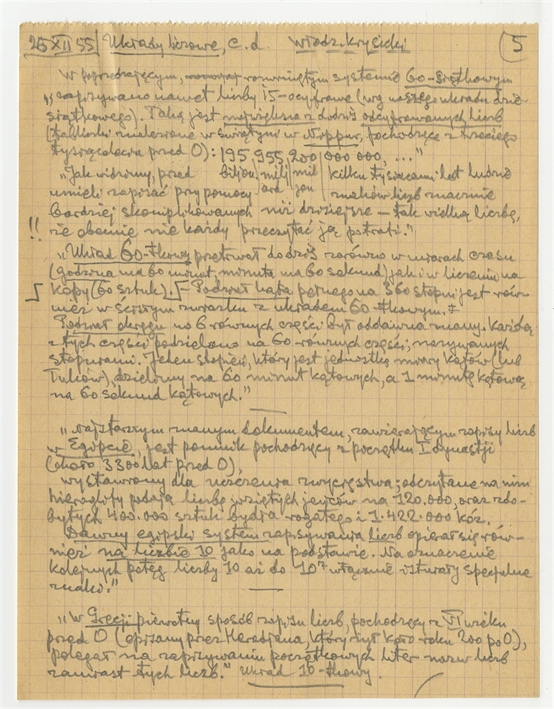 25 XII 55 Układy liczowe, c.d. Włodz. Krysicki 5
W poprzedzającym, rozwiniętym systemie 60-siątkowym
"zapisywano nawet liczby 15-ocyfrowe (wg naszego układu dzie-
siątkowego). Taką jest największa z dotąd odcyfrowanych liczb
(tabliczki znalezione w świątyni w Nippur, pochodzące z trzeciego
tysiąclecia przed 0): 195 955 200 000 000, ..."
"Jak widzimy, przed kilku tysiącami lat ludzie
biljon mili ard mil jon
umieli zapisać przy pomocy znaków liczb znacznie
bardziej skomplikowanych niż dzisiejsze – tak wielką liczbę,
!! że obecnie nie każdy przeczytać ją potrafi."
"Układ 60-tkowy przetrwał do dziś zarówno w miarach czasu
(godzina ma 60 minut, minuta ma 60 sekund), jak i w liczeniu na
kopy (60 sztuk). Podział kąta pełnego na 360 stopni jest rów-
nież w ścisłym związku z układem 60-tkowym.
Podział okręgu na 6 równych części był oddawna znany. Każdą
z tych części podzielono na 60 równych części, nazywanych
stopniami. Jeden stopień, który jest jednostką miary kątów (lub
łuków), dzielimy na 60 minut kątowych, a 1 minutę kątową
na 60 sekund kątowych."
"Najstarszym znanym dokumentem, zawierającym zapisy liczb
w Egipcie, jest pomnik pochodzący z początku I dynastji
(około 3300 lat przed 0),
wystawiony dla uczczenia zwycięstwa; odczytane na nim
hieroglify podają liczbę wziętych jeńców na 120.000, oraz zdo-
bytych 400.000 sztuk bydła rogatego i 1.422.000 kóz.
Dawny egipski system zapisywania liczb opierał się rów-
nież na liczbie 10 jako na podstawie. Na oznaczenie
kolejnych potęg liczby 10 aż do 10⁷ włącznie istniały specjalne
znaki."
"W Grecji pierwotny sposób zapisu liczb, pochodzący z VI wieku
przed 0 (opisany przez Herodjana, który żył koło roku 200 po 0),
polegał na zapisywaniu początkowych liter nazw liczb
zamiast tych liczb." Układ 10-tkowy.